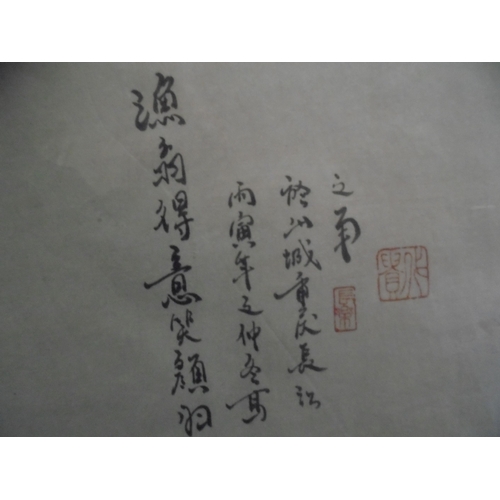 漁翁得意笑顏開
丙寅年之仲冬寫
於山城重慶長江
之南